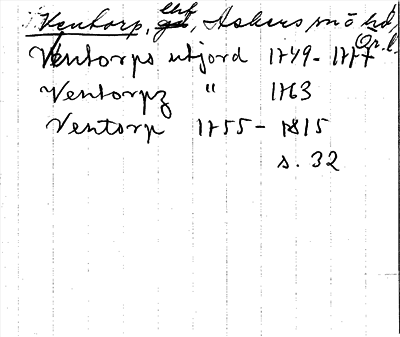 Ventorp, ehf gd, Askers sn o hd, Ör. l.
Ventorps utjord 1749-1777
Ventorpz " 1763
Ventorp 1755-1815
s. 32